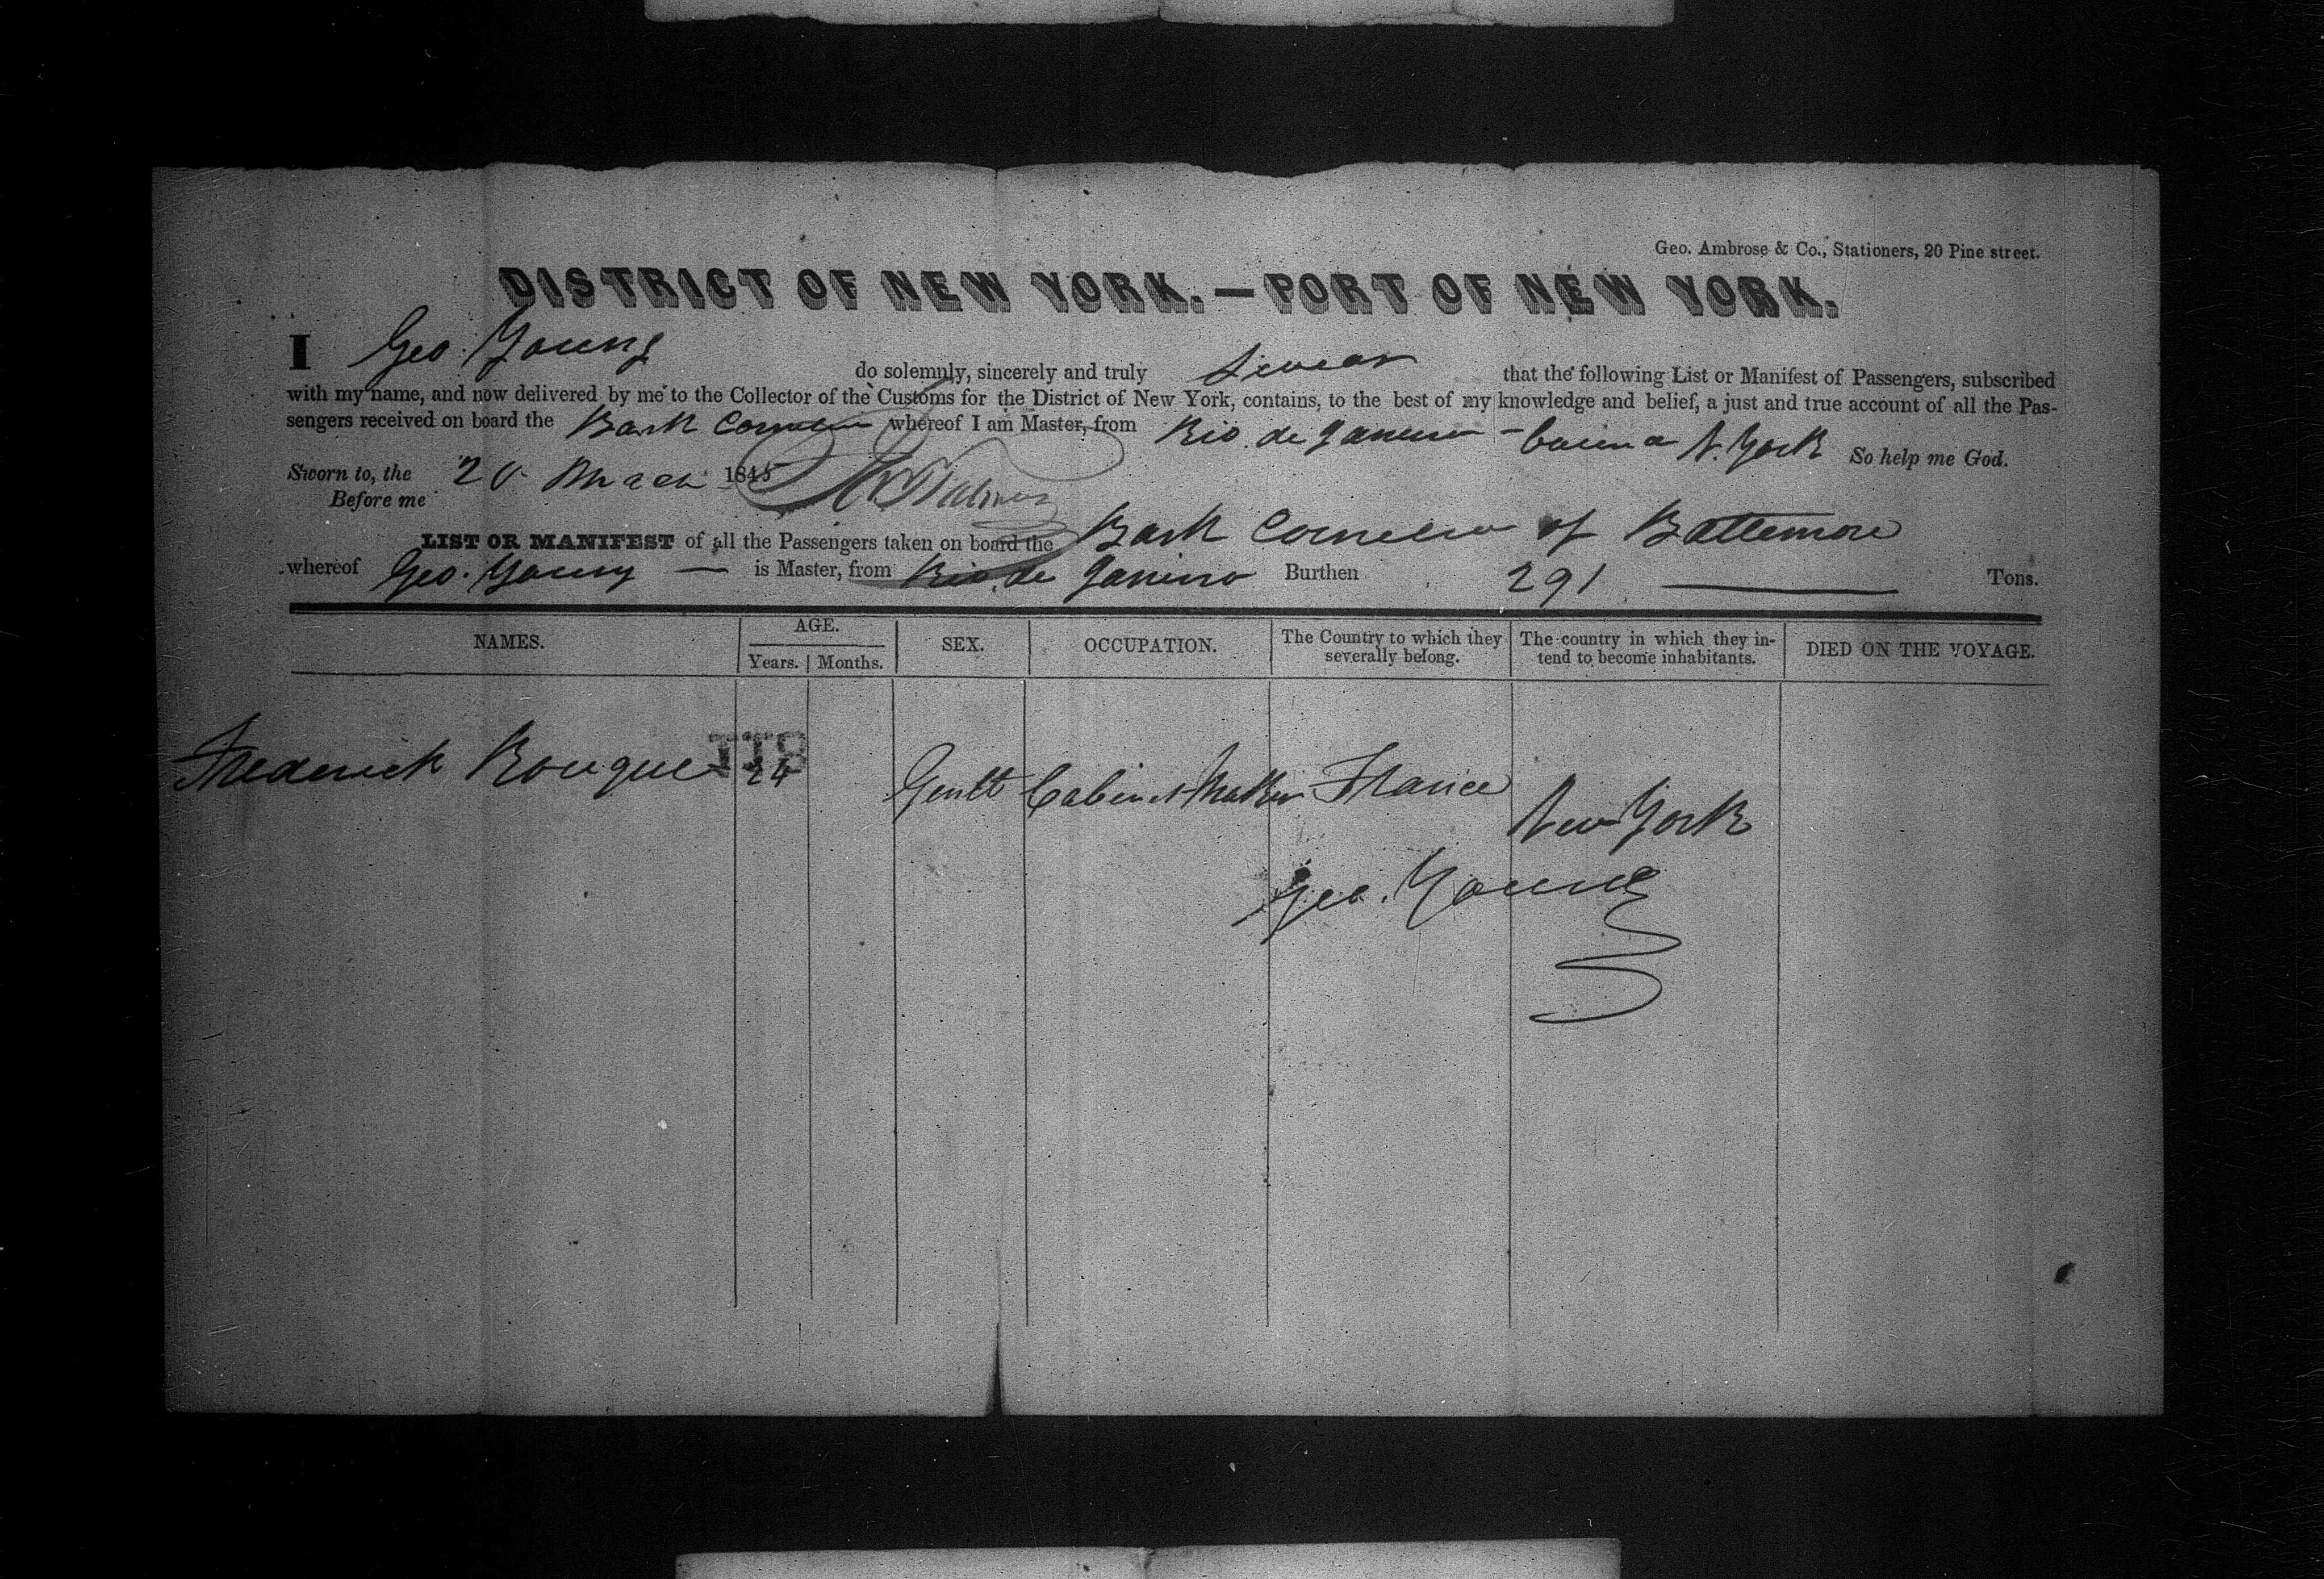 Geo. Ambrose & Co., Stationers, 20 Pine street.
DISTRICT OF NEW YORK.—PORT OF NEW YORK.
I Geo. Young do solemnly, sincerely and truly swear that the following List or Manifest of Passengers, subscribed
with my name, and now delivered by me to the Collector of the Customs for the District of New York, contains, to the best of my knowledge and belief, a just and true account of all the Pas-
sengers received on board the Bark whereof I am Master, from Rio de Janeiro N. York So help me God.
Sworn to, the 20 March 1845
Before me
LIST OR MANIFEST of all the Passengers taken on board the Bark Cornelia of Baltemore
whereof Geo. Young — is Master, from Rio de Janeiro Burthen 291 Tons.
NAMES. AGE. SEX. OCCUPATION. The Country to which they severally belong. The country in which they in-tend to become inhabitants. DIED ON THE VOYAGE.
Years. Months.
118
Frederick Rouque 24 Gentt Cabinet Maker France New York
Geo. Young